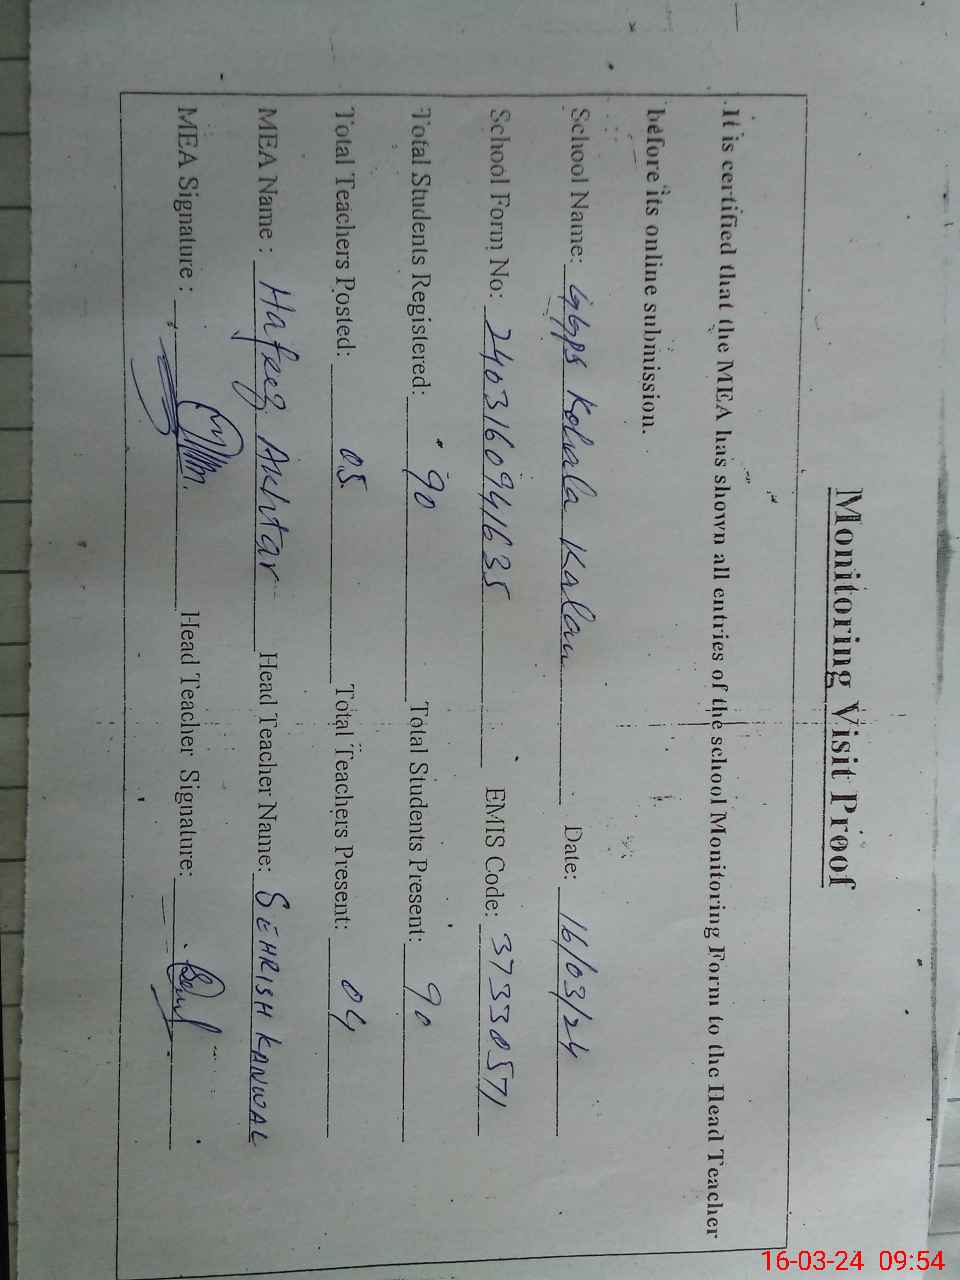 Monitoring Visit Proof
It is certified that the MEA has shown all entries of the school Monitoring Form to the Head Teacher
before its online submission.
School Name: Kohala Kalan Date: 16/03/24
School Form No: 2403160941635 EMIS Code: 37330571
Total Students Registered: 90 Total Students Present: 90
Total Teachers Posted: 05 Total Teachers Present: 04
MEA Name : Hafeez Akhtar Head Teacher Name: SEHRISH KANWAL
MEA Signature : Head Teacher Signature:
16-03-24 09:54